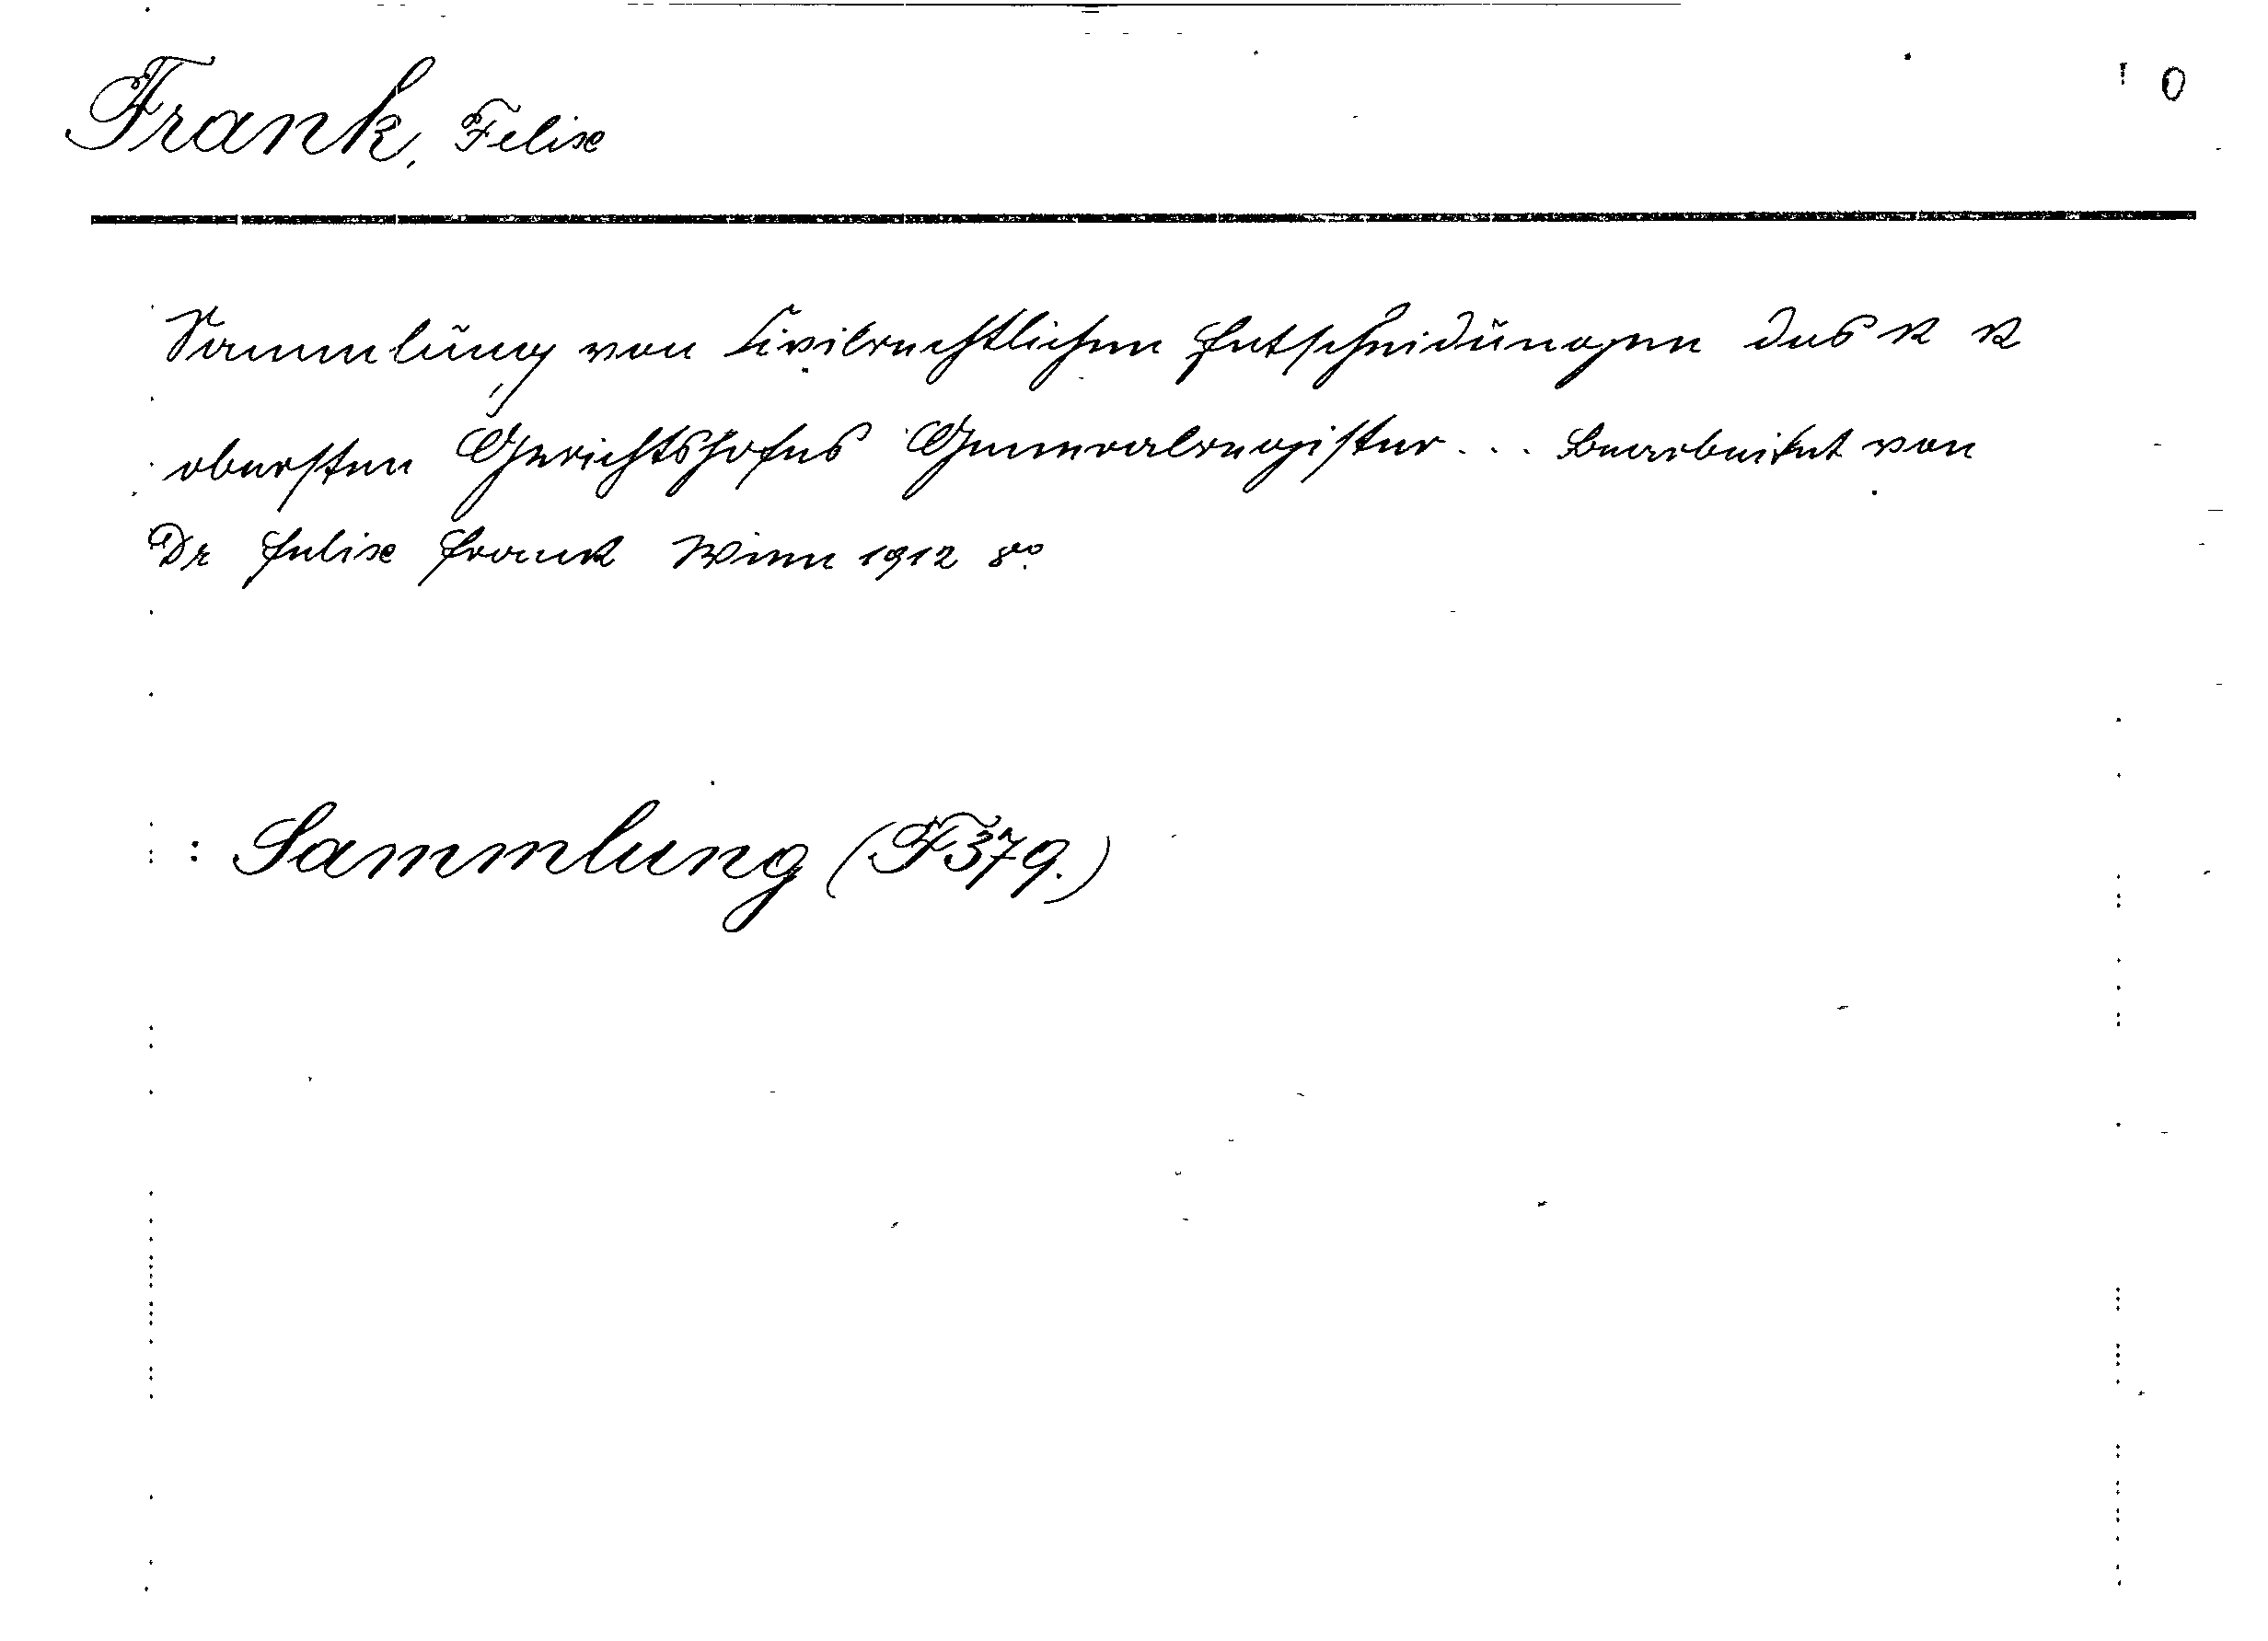 Frank, Felix
0
Sammlung von Civilrechtlichen Entscheidungen des k k
obersten Gerichtshofes Generalregister... bearbeitet von
Dr Felix Frank Wien 1912 8vo
: Sammlung (F379.)